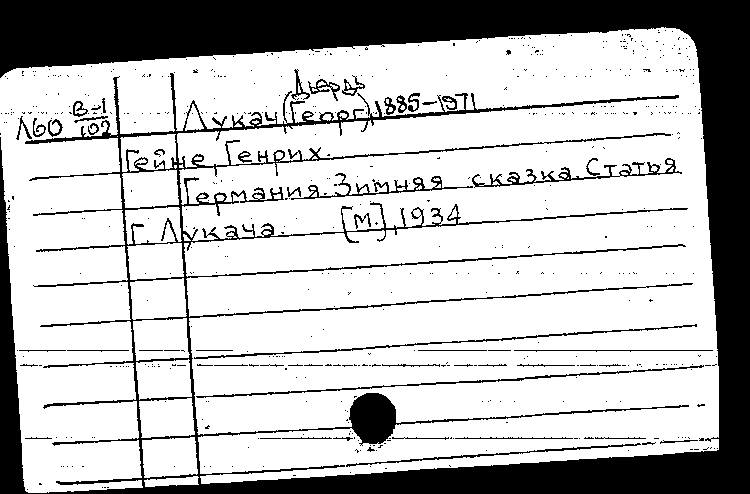 Дьердь
Л60 В-1/102 Лукач, (Георг), 1885-1971
Гейне, Генрих.
Германия. Зимняя сказка. Статья
Г. Лукача. [М.], 1934